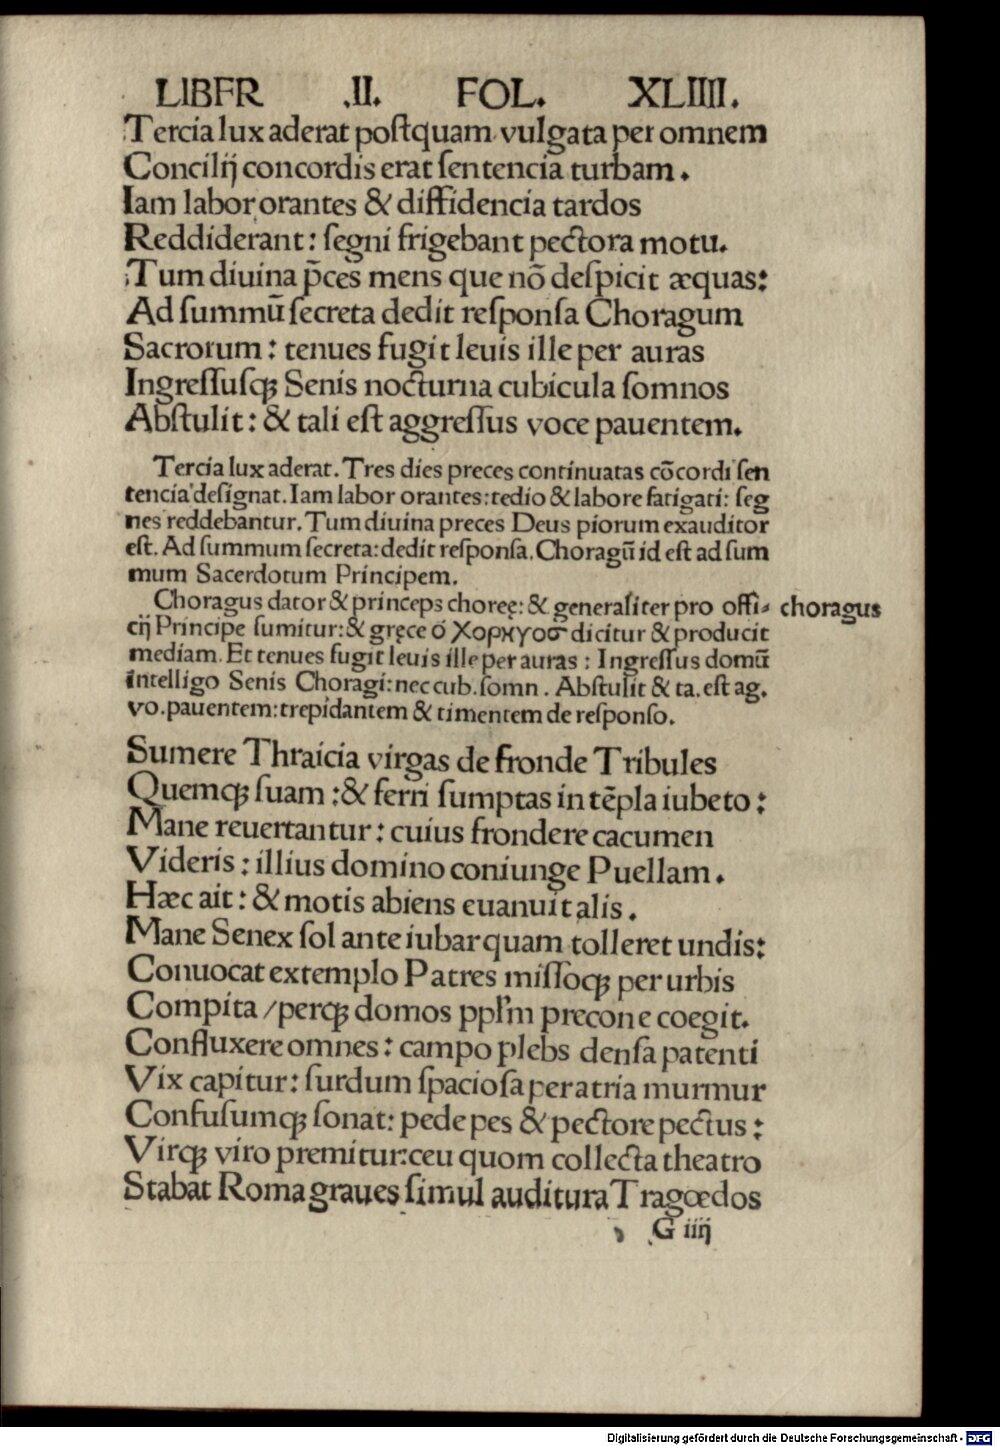 LIBER .II. FOL. XLIIII.
Tercia lux aderat poſtquam vulgata per omnem
Concilij concordis erat ſentencia turbam.
Iam labor orantes & diffidencia tardos
Reddiderant: ſegni frigebant pectora motu.
Tum diuina p̄ces mens que nō deſpicit æquas:
Ad ſummū ſecreta dedit reſponſa Choragum
Sacrorum: tenues fugit leuis ille per auras
Ingreſſuſqꝫ Senis nocturna cubicula ſomnos
Abſtulit: & tali eſt aggreſſus voce pauentem.
Tercia lux aderat. Tres dies preces continuatas cōcordi ſen
tencia deſignat. Iam labor orantes: tedio & labore fatigati: ſeg
nes reddebantur. Tum diuina preces Deus piorum exauditor
eſt. Ad ſummum ſecreta: dedit reſponſa. Choragū id eſt ad ſum
mum Sacerdotum Principem.
Choragus dator & princeps choreę: & generaliter pro offi- choragus
cij Principe ſumitur: & gręce ὁ χορηγοσ dicitur & producit
mediam. Et tenues fugit leuis ille per auras: Ingreſſus domū
intelligo Senis Choragi: nec cub. ſomn. Abſtulit & ta. eſt ag.
vo. pauentem: trepidantem & timentem de reſponſo.
Sumere Thraicia virgas de fronde Tribules
Quemqꝫ ſuam: & ferri ſumptas in tēpla iubeto:
Mane reuertantur: cuius frondere cacumen
Videris: illius domino coniunge Puellam.
Hæc ait: & motis abiens euanuit alis.
Mane Senex ſol ante iubar quam tolleret undis:
Conuocat extemplo Patres miſſoqꝫ per urbis
Compita / perqꝫ domos ppľm precone coegit.
Confluxere omnes: campo plebs denſa patenti
Vix capitur: ſurdum ſpacioſa per atria murmur
Confuſumqꝫ ſonat: pede pes & pectore pectus:
Virqꝫ viro premitur: ceu quom collecta theatro
Stabat Roma graues ſimul auditura Tragœdos
G iiij
Digitalisierung gefördert durch die Deutsche Forschungsgemeinschaft - DFG